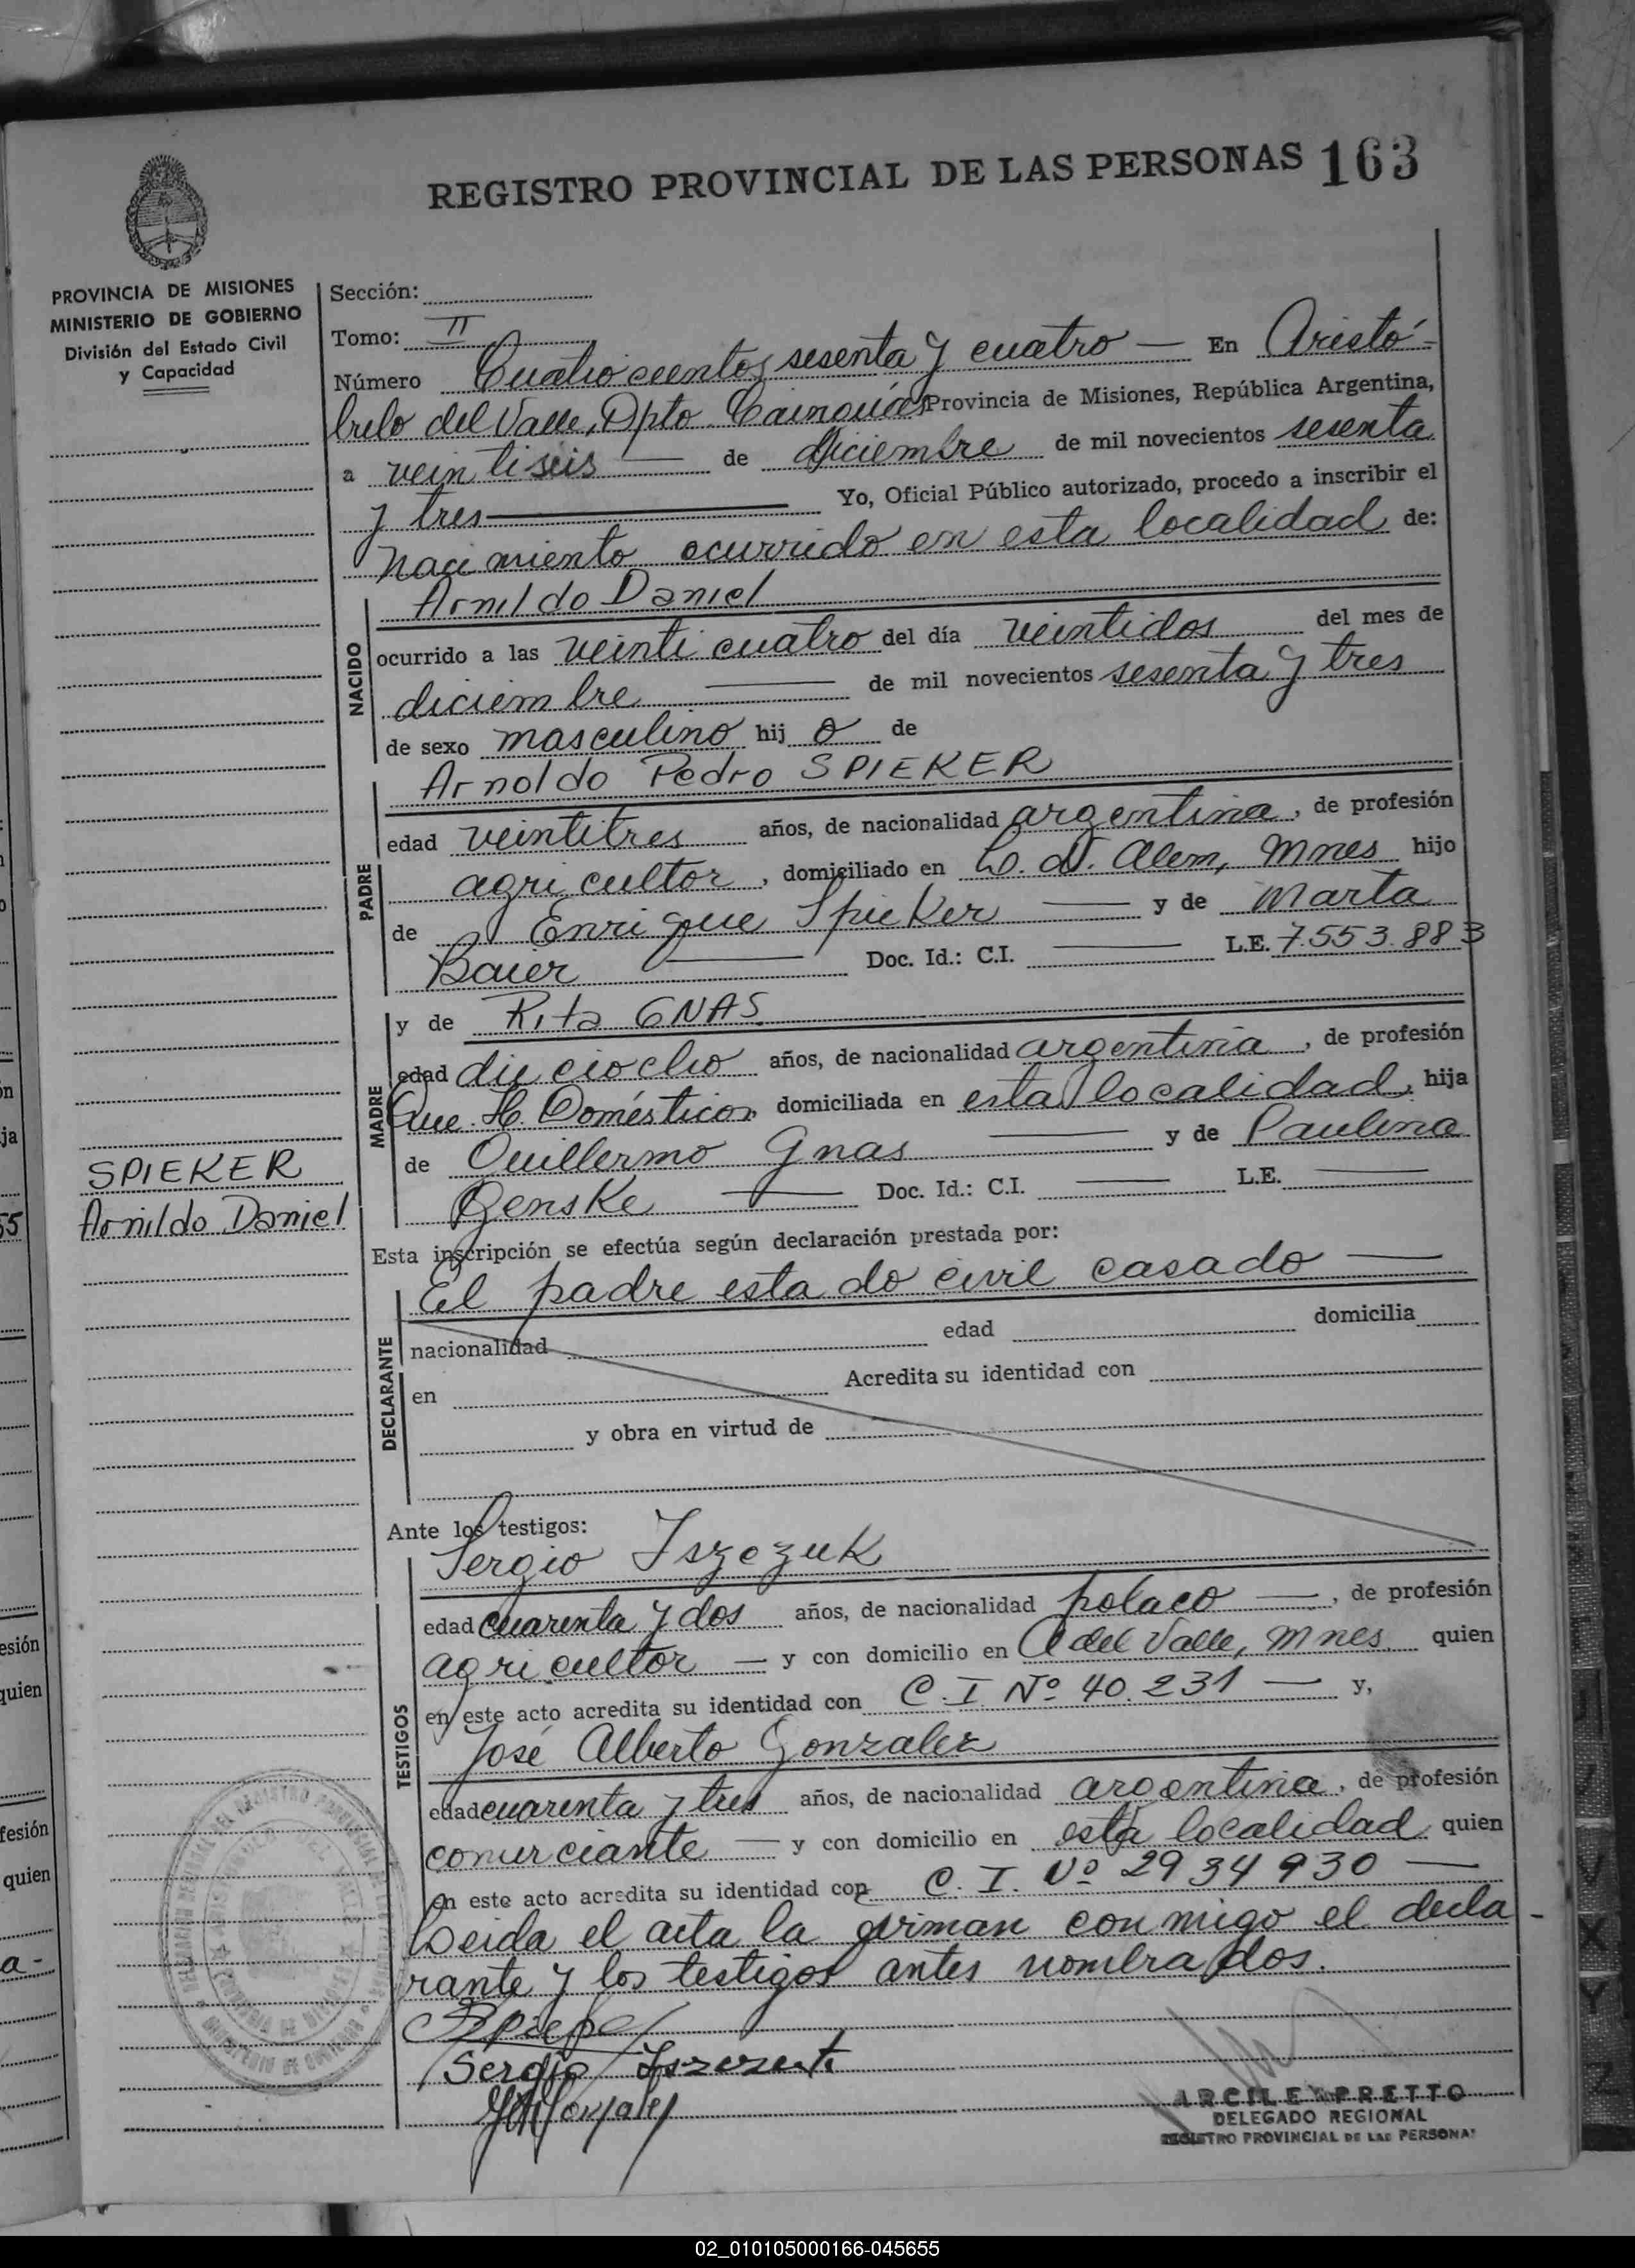 REGISTRO PROVINCIAL DE LAS PERSONAS 163
PROVINCIA DE MISIONES
MINISTERIO DE GOBIERNO
División del Estado Civil
y Capacidad
Sección:
Tomo: II
Número Cuatrocientos sesenta y cuatro — En Aristó-
bulo del Valle, Dpto. Cainguás Provincia de Misiones, República Argentina,
a veintiseis — de diciembre de mil novecientos sesenta
y tres — Yo, Oficial Público autorizado, procedo a inscribir el
nacimiento ocurrido en esta localidad de:
Arnildo Daniel
NACIDO
ocurrido a las veinticuatro del día veintidos del mes de
diciembre — de mil novecientos sesenta y tres
de sexo masculino hij o de
Arnoldo Pedro SPIEKER
PADRE
edad veintitres años, de nacionalidad argentina, de profesión
agricultor, domiciliado en L. N. Alem, Mnes hijo
de Enrique Spieker — y de Marta
Bauer — Doc. Id.: C.I. — L.E. 7.553.883
y de Rita GNAS
MADRE
edad dieciocho años, de nacionalidad argentina, de profesión
Que. H. Domésticos domiciliada en esta localidad, hija
de Guillermo Gnas — y de Paulina
Genske — Doc. Id.: C.I. — L.E. —
SPIEKER
Arnildo Daniel
Esta inscripción se efectúa según declaración prestada por:
El padre estado civil casado —
DECLARANTE
nacionalidad edad domicilia
en Acredita su identidad con
y obra en virtud de
Ante los testigos:
Sergio Iszczuk
TESTIGOS
edad cuarenta y dos años, de nacionalidad polaco —, de profesión
agricultor — y con domicilio en A del Valle, Mnes. quien
en este acto acredita su identidad con C. I. Nº 40.231 — y,
José Alberto Gonzalez
edad cuarenta y tres años, de nacionalidad argentina, de profesión
comerciante — y con domicilio en esta localidad quien
en este acto acredita su identidad con C. I. Nº 2934930 —
Leida el acta la firman conmigo el decla-
rante y los testigos antes nombrados.
Sergio
ARCILE PRETTO
DELEGADO REGIONAL
REGISTRO PROVINCIAL DE LAS PERSONAS
02_010105000166-045655